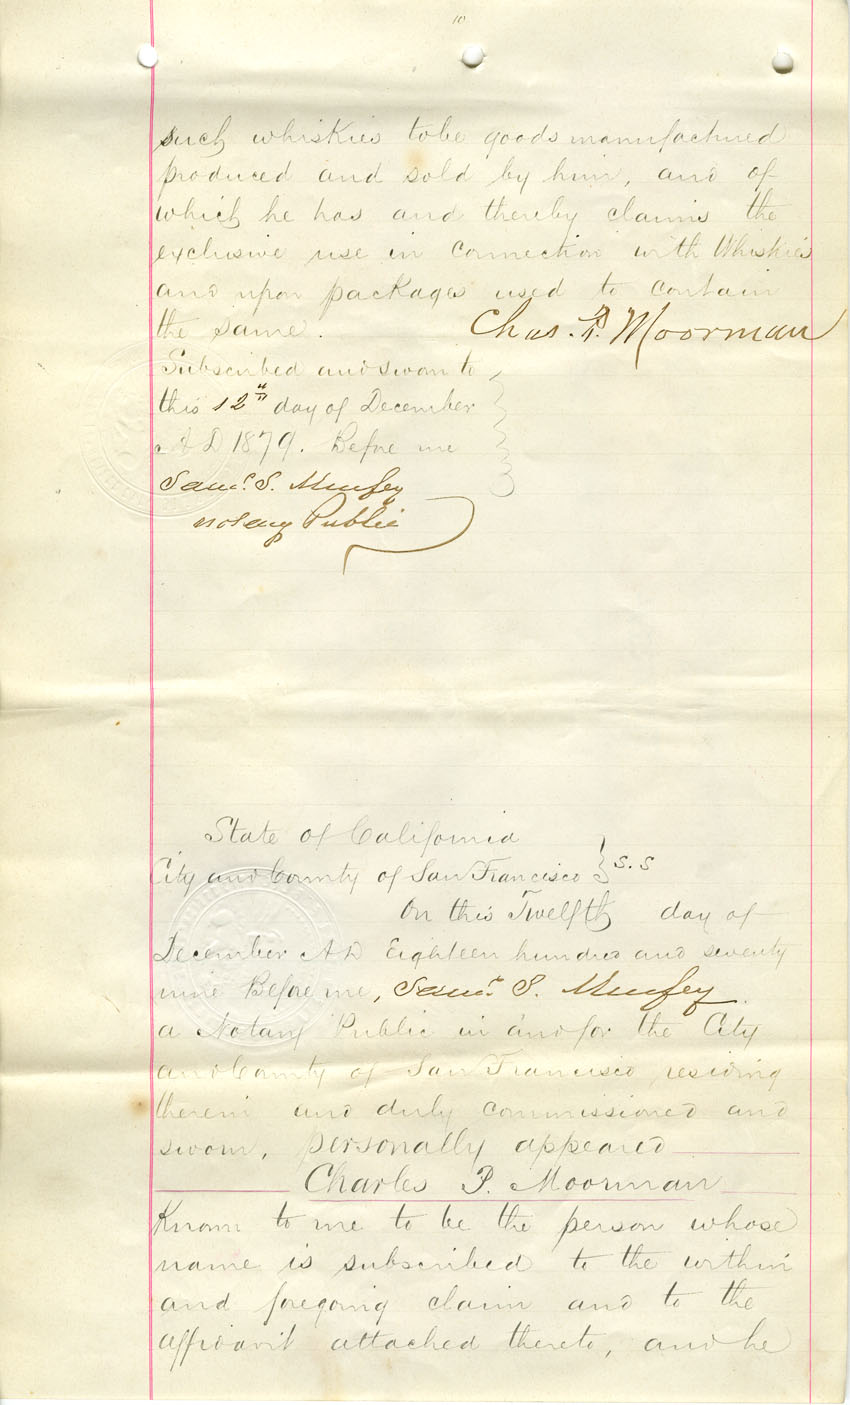 10
such whiskies to be goods manufactured
produced and sold by him, and of
which he has and thereby claims the
exclusive use in connection with Whiskies
and upon packages used to contain
the same. Chas. P. Moorman
Subscribed and sworn to
this 12th day of December
A D 1879. Before me
Saml. S. Murfey
Notary Public
State of California
City and County of San Francisco } S.S
On this Twelfth day of
December A D Eighteen hundred and seventy
nine Before me, Saml. S. Murfey
a Notary Public in and for the City
and County of San Francisco, residing
therein and duly commissioned and
sworn, personally appeared
Charles P. Moorman
Known to me to be the person whose
name is subscribed to the within
and foregoing claim and to the
affidavit attached thereto, and he